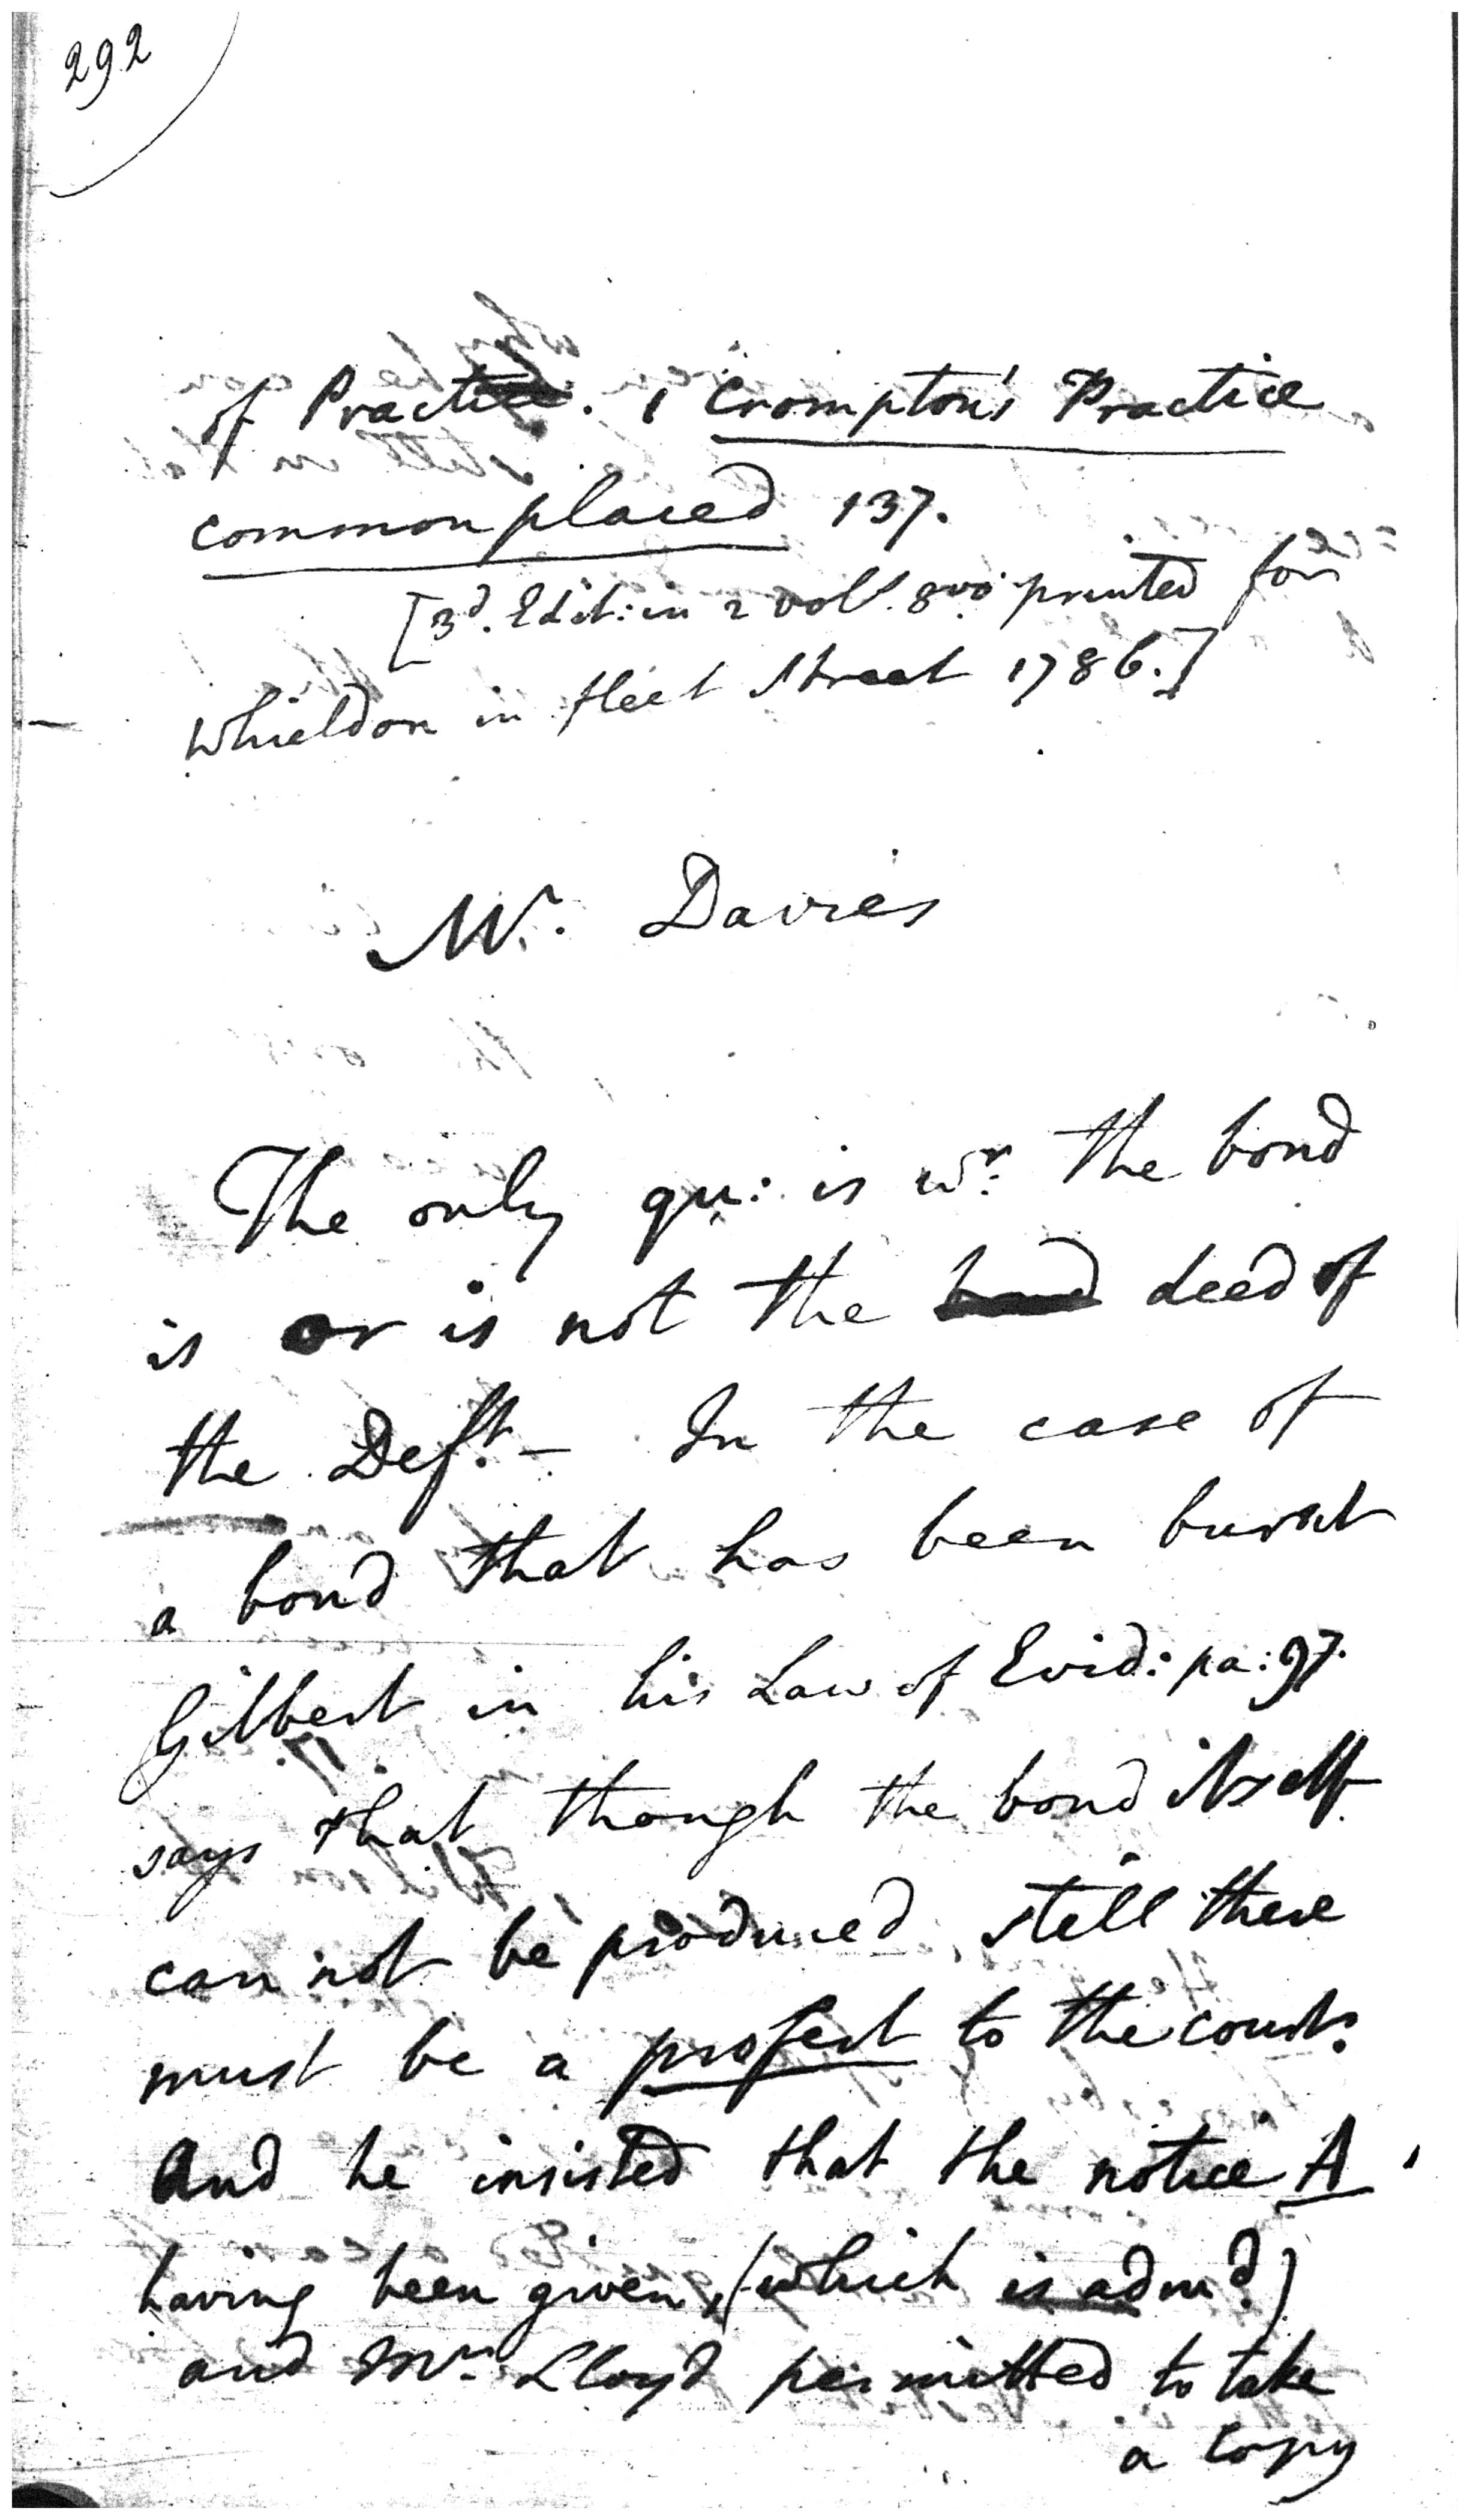 292
of Practice. 1 Crompton's Practice
common placed 137.
[3d. Edit: in 2 vols. 8vo. printed for
Whieldon in Fleet Street 1786.]
Mr. Davies
The only qu: is wr. the bond
is or is not the bond deed of
the Deft. - In the case of
a bond that has been burnt
Gilbert in his Law of Evid: pa: 97.
says that though the bond itself
can not be produced, still there
must be a profert to the court.
And he insisted that the notice A
having been given, (which is admd.)
and Mr. Lloyd permitted to take
a copy